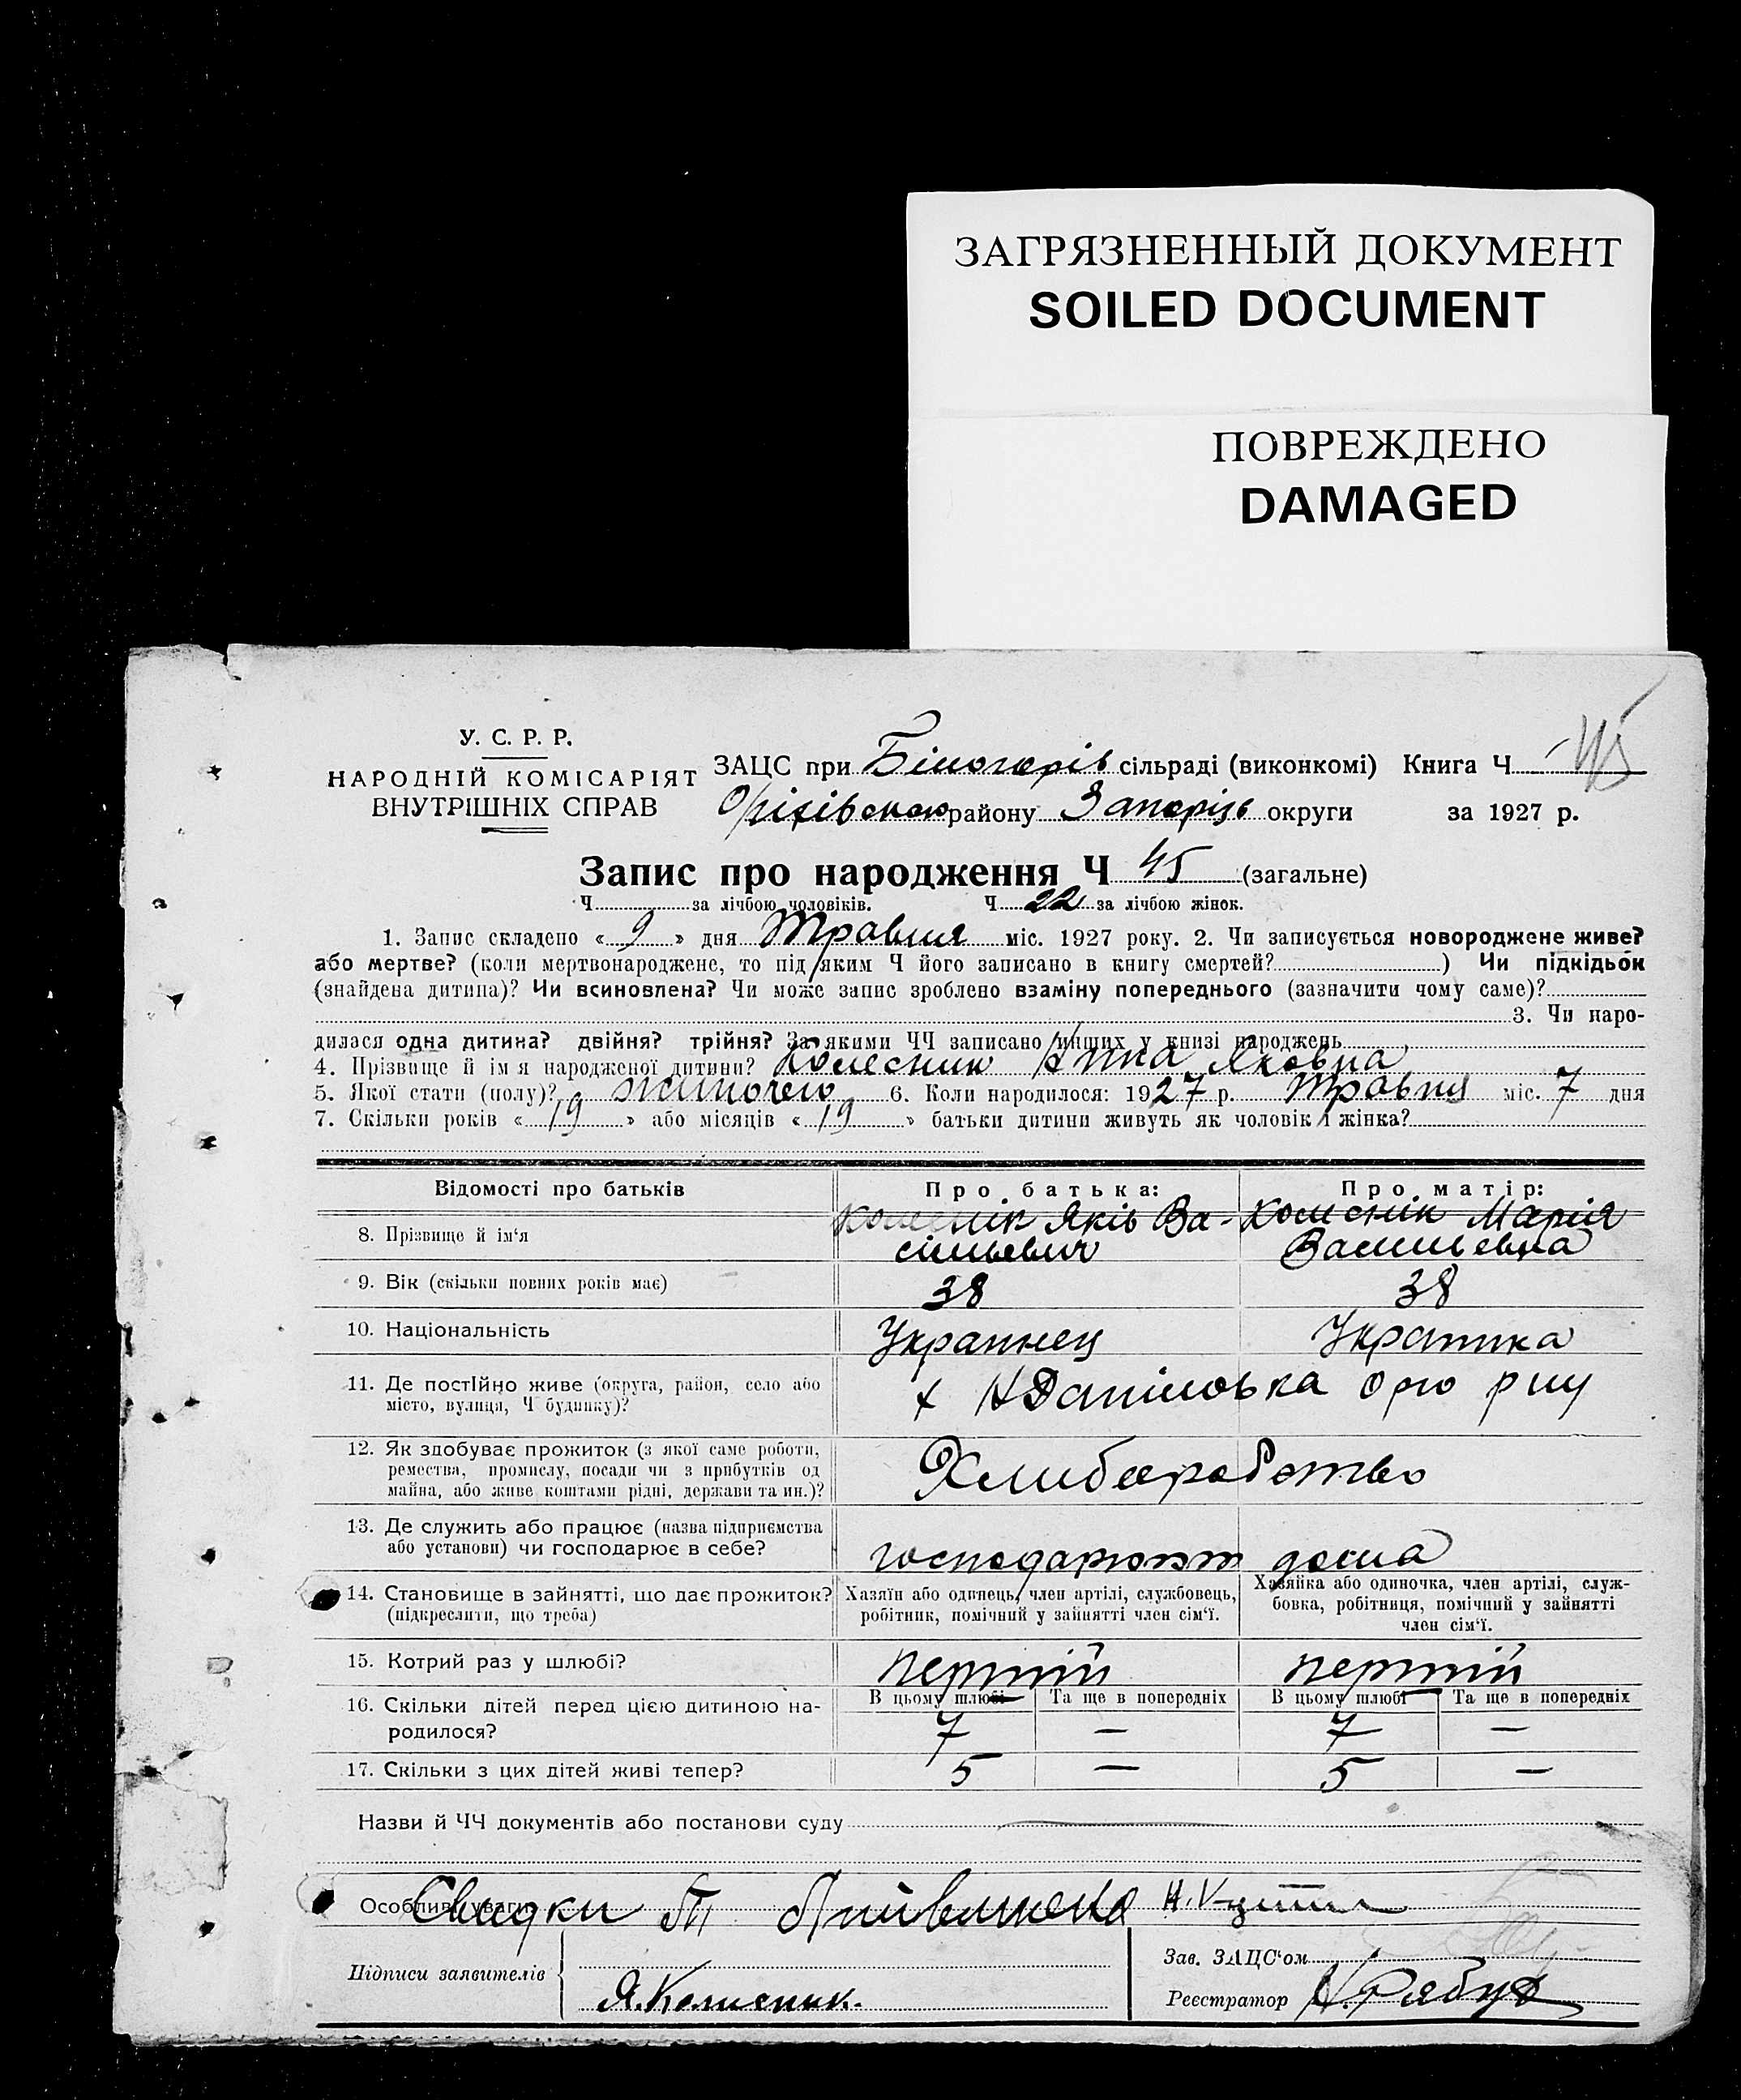 ЗАГРЯЗНЕННЫЙ ДОКУМЕНТ
SOILED DOCUMENT
ПОВРЕЖДЕНО
DAMAGED
У. С. Р. Р.
НАРОДНІЙ КОМІСАРІЯТ
ВНУТРІШНІХ СПРАВ
ЗАЦС при Білогорів сільраді (виконкомі) Книга Ч
Оріхівськ району Запоріз округи за 1927 р.
Запис про народження Ч 45 (загальне)
Ч за лічбою чоловіків. Ч 22 за лічбою жінок.
1. Запис складено « 9 » дня Травня міс. 1927 року. 2. Чи записується новороджене живе?
або мертве? (коли мертвонароджене, то під яким Ч його записано в книгу смертей? ) Чи підкідьок
(знайдена дитина)? Чи всиновлена? Чи може запис зроблено взаміну попереднього (зазначити чому саме)?
3. Чи наро-
дилася одна дитина? двійня? трійня? За якими ЧЧ записано инших у книзі народжень
4. Прізвище й ім я народженої дитини? Колесник Яковна
5. Якої стати (полу)? жиночею 6. Коли народилося: 1927 р. Травня міс. 7 дня
7. Скільки років « 19 » або місяців « 19 » батьки дитини живуть як чоловік і жінка?
Відомості про батьків
Про батька:
Про матір:
8. Прізвище й ім'я
Колеснік Яків Ва-
сильевич
Колеснік Марія
Васильевна
9. Вік (скільки повних років має) 38 38
10. Національність Украинец Украинка
11. Де постійно живе (округа, район, село або
місто, вулиця, Ч будинку)?
х Н Даніловка
12. Як здобуває прожиток (з якої саме роботи,
ремества, промислу, посади чи з прибутків од
майна, або живе коштами рідні, держави та ин.)?
Хлиборобство
13. Де служить або працює (назва підприємства
або установи) чи господарює в себе?
господарюют дома
14. Становище в зайнятті, що дає прожиток?
(підкреслити, що треба)
Хазяїн або одинець, член артілі, службовець,
робітник, помічний у зайнятті член сім'ї.
Хазяйка або одиночка, член артілі, служ-
бовка, робітниця, помічний у зайнятті
член сім'ї.
15. Котрий раз у шлюбі? першій першій
16. Скільки дітей перед цією дитиною на-
родилося?
В цьому шлюбі Та ще в попередніх В цьому шлюбі Та ще в попередніх
7 — 7 —
17. Скільки з цих дітей живі тепер? 5 — 5 —
Назви й ЧЧ документів або постанови суду
Особливі уваги Свидки
Підписи заявителів
Я. Колисник.
Зав. ЗАЦС'ом
Реєстратор